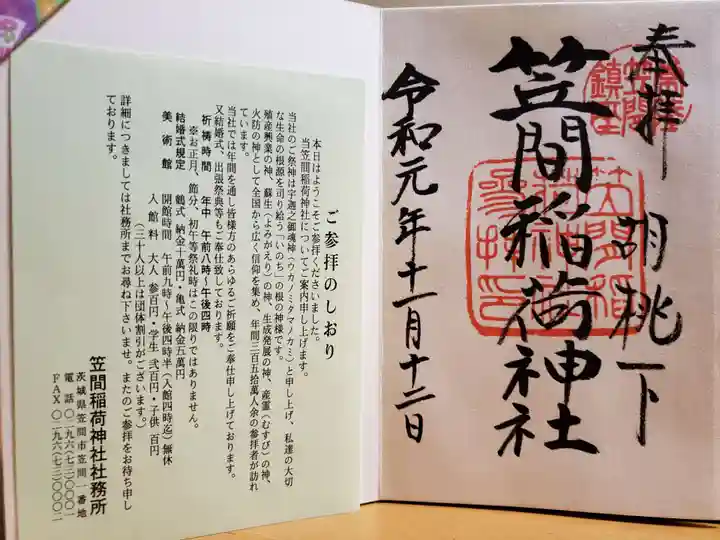 ご参拝のしおり
本日はようこそご参拝くださいました。
当笠間稲荷神社についてご案内申し上げます。
当社のご祭神は宇迦之御魂神（ウカノミタマノカミ）と申し上げ、私達の大切
な生命の根源を司り給う「いのち」の根の神様です。
殖産興業の神、蘇生（よみがえり）の神、生成発展の神、産霊（むすび）の神、
火防の神として全国から広く信仰を集め、年間三百五拾萬人余の参拝者が訪れ
ています。
当社では年間を通し皆様方のあらゆるご祈願をご奉仕申し上げております。
又結婚式、出張祭典等もご奉仕致しております。
祈祷時間　年中　午前八時〜午後四時
※お正月、節分、初午等祭礼時はこの限りではありません。
結婚式規定　鶴式　納金十萬円・亀式　納金五萬円
美術館　開館時間　午前九時〜午後四時半（入館四時迄）無休
入館料　大人　参百円・学生　弐百円・子供　百円
（三十人以上は団体割引がございます。）
詳細につきましては社務所までお尋ね下さいませ。またのご参拝をお待ち申し
ております。
笠間稲荷神社社務所
茨城県笠間市笠間一番地
電話〇二九六（七三）〇〇〇一
FAX〇二九六（七三）〇〇〇二
奉拝　胡桃下
笠間稲荷神社
令和元年十一月十二日